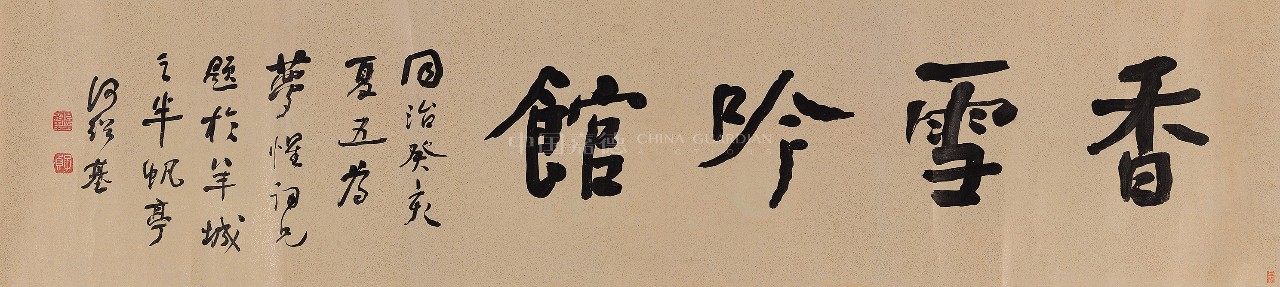 香雪吟館
同治癸亥
夏五為
夢惺詞兄
題於羊城
之半帆亭
何紹基
中国嘉德 CHINA GUARDIAN